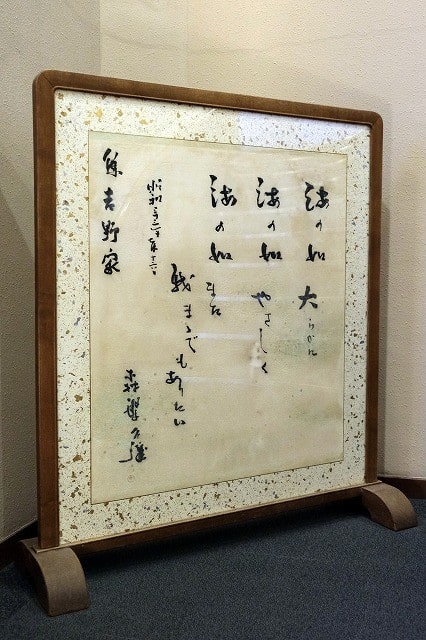 海の如 大らかに
海の如 やさしく
海の如 また
我まゝでもありたい
昭和三十
吉野家
森繁久彌